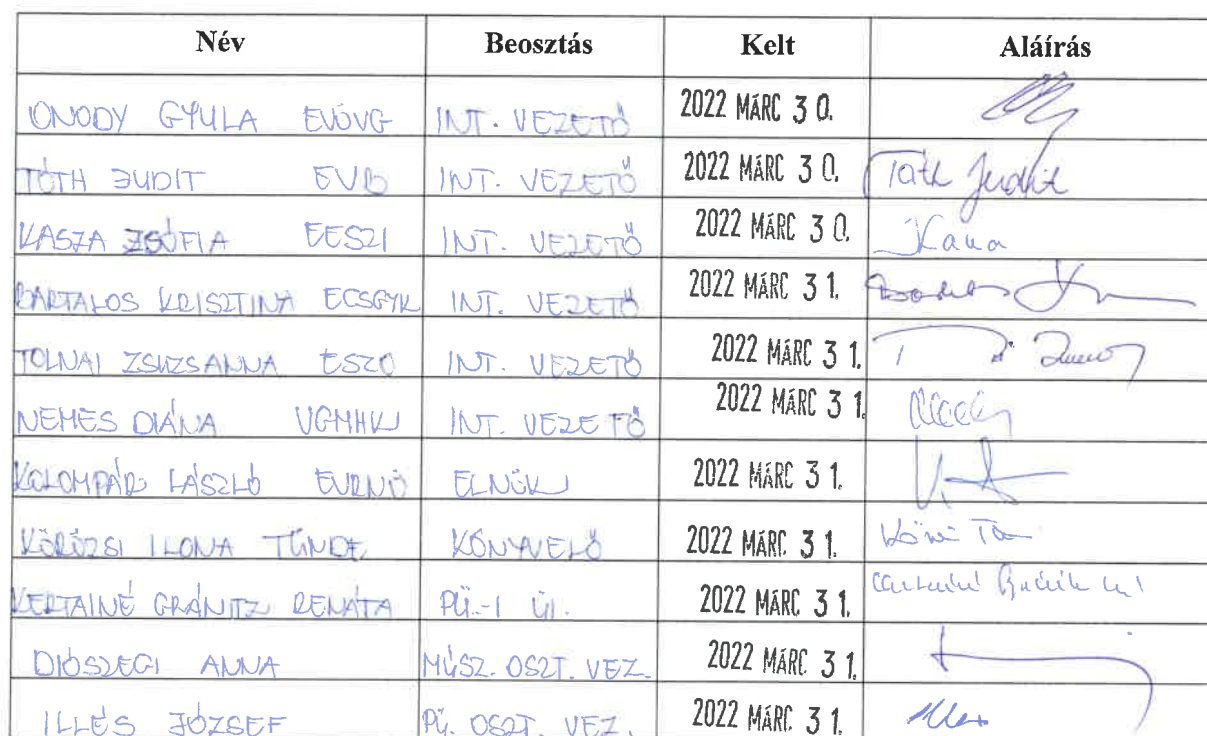 Név Beosztás Kelt Aláírás
ONODY GYULA EVÖVG INT. VEZETŐ 2022 MÁRC 30.
TÓTH JUDIT EVB INT. VEZETŐ 2022 MÁRC 30. Tóth Judit
KASZA ZSÓFIA EESZI INT. VEZETŐ 2022 MÁRC 30. Kasza
BARTALOS KRISZTINA ECSGYK INT. VEZETŐ 2022 MÁRC 31.
TOLNAI ZSUZSANNA ESZO INT. VEZETŐ 2022 MÁRC 31.
NEMES DIÁNA VGMHK INT. VEZETŐ 2022 MÁRC 31.
KOLOMPÁR LÁSZLÓ EVRNÖ ELNÖK 2022 MÁRC 31.
KÖRÖZSI ILONA TÜNDE KÖNYVELŐ 2022 MÁRC 31.
KERTAINÉ GRÁNITZ RENÁTA PÜ.-I ÜI. 2022 MÁRC 31.
DIÓSZEGI ANNA MŰSZ. OSZT. VEZ. 2022 MÁRC 31.
ILLÉS JÓZSEF PÜ. OSZT. VEZ. 2022 MÁRC 31. Illés